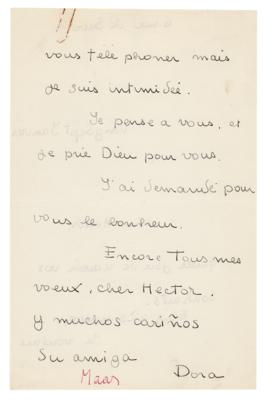 vous télé phoner mais
je suis intimidée.
Je pense a vous, et
je prie Dieu pour vous.
J'ai demandé pour
vous le bonheur.
Encore Tous mes
voeux, cher Hector.
y muchos cariños
Su amiga
Dora
Maar